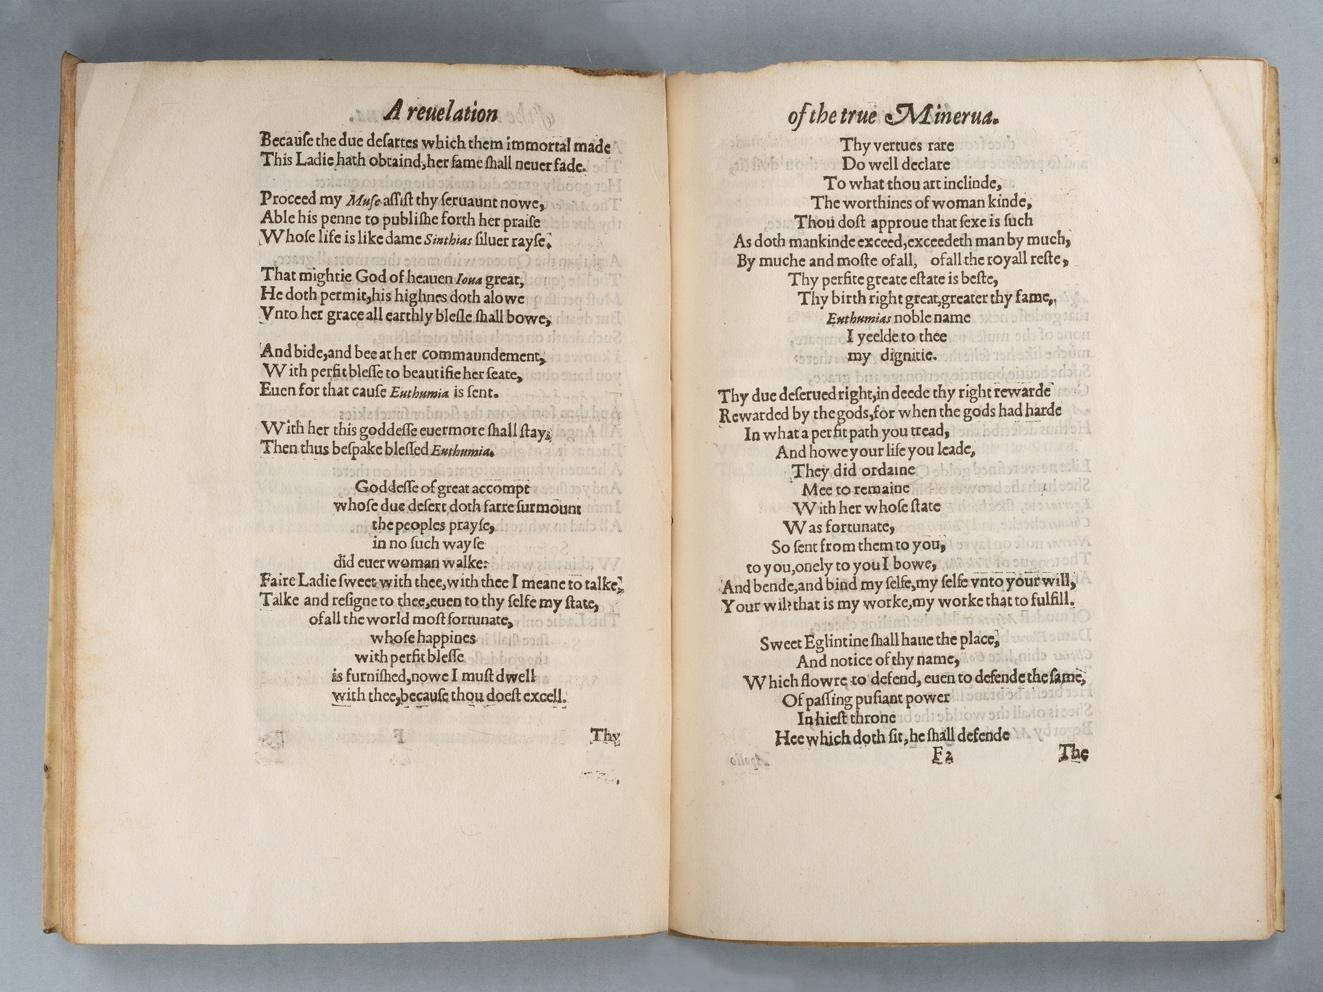 A reuelation
Becauſe the due deſartes which them immortal made
This Ladie hath obtaind, her fame ſhall neuer fade.
Proceed my Muſe aſſiſt thy ſeruaunt nowe,
Able his penne to publiſhe forth her praiſe
Whoſe life is like dame Sinthias ſiluer rayſe.
That mightie God of heauen Ioua great,
He doth permit, his highnes doth alowe
Vnto her grace all earthly bleſſe ſhall bowe,
And bide, and bee at her commaundement,
With perfit bleſſe to beautifie her ſeate,
Euen for that cauſe Euthumia is ſent.
With her this goddeſſe euermore ſhall ſtay,
Then thus beſpake bleſſed Euthumia.
Goddeſſe of great accompt
whoſe due deſert doth farre ſurmount
the peoples prayſe,
in no ſuch wayſe
did euer woman walke:
Faire Ladie ſweet with thee, with thee I meane to talke,
Talke and reſigne to thee, euen to thy ſelfe my ſtate,
of all the world moſt fortunate,
whoſe happines
with perfit bleſſe
is furniſhed, nowe I muſt dwell
with thee, becauſe thou doeſt excell.
Thy
of the true Minerua.
Thy vertues rare
Do well declare
To what thou art inclinde,
The worthines of woman kinde,
Thou doſt approue that ſexe is ſuch
As doth mankinde exceed, exceedeth man by much,
By muche and moſte of all, of all the royall reſte,
Thy perfite greate eſtate is beſte,
Thy birth right great, greater thy fame,
Euthumias noble name
I yeelde to thee
my dignitie.
Thy due deſerued right, in deede thy right rewarde
Rewarded by the gods, for when the gods had harde
In what a perfit path you tread,
And howe your life you leade,
They did ordaine
Mee to remaine
With her whoſe ſtate
Was fortunate,
So ſent from them to you,
to you, onely to you I bowe,
And bende, and bind my ſelfe, my ſelfe vnto your will,
Your will that is my worke, my worke that to fulfill.
Sweet Eglintine ſhall haue the place,
And notice of thy name,
Which flowre to defend, euen to defende the ſame,
Of paſſing puſiant power
In hieſt throne
Hee which doth ſit, he ſhall defende
F2
The